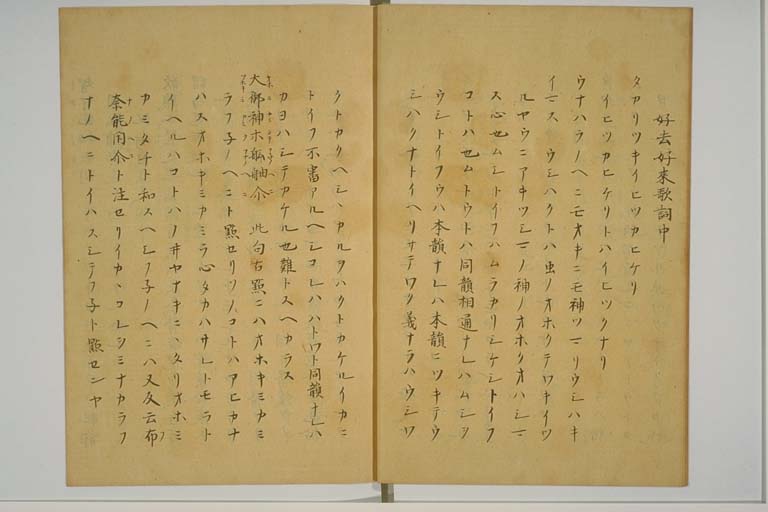 好去好来歌詞中
タカリツキイヒツカヒケリ
イヒツカヒケリトハイヒツクナリ
ウナハラノヘニモオキニモ神ツマリウシハキ
イマス ウシハクトハ虫ノオホクテワキイツ
ルヤウニアキツシマノ神ノオホクオハシマ
ス心也ムシトイフハムラカリシケシトイフ
コトハ也ムトウトハ同韻相通ナレハムシヲ
ウシトイフウハ本韻ナレハ本韻ニツキテウ
シハクナトイヘリサテワツ義ナラハウシワ
クトカクヘシ、カルヲハクトカケルイカニ
トイフ不審アルヘシコレハハトワト同韻ナレハ
カヨハシテカケル也難トスヘカラス
大御神等船舳尓 此句古點ニハオホキミカミ
ラフ子ノヘニト點セリソノコトハアヒカナ
ハスオホキミカミラ心タカハサレトモラト
イヘルハコトハノ井ヤナキニ、タリオホミ
カミタチト和スヘシフ子ノヘニハ又反云布
奈能閇尓ト注セリイカ、コレヲミナカラフ
ナノヘニトイハスシテフ子ト點センヤ